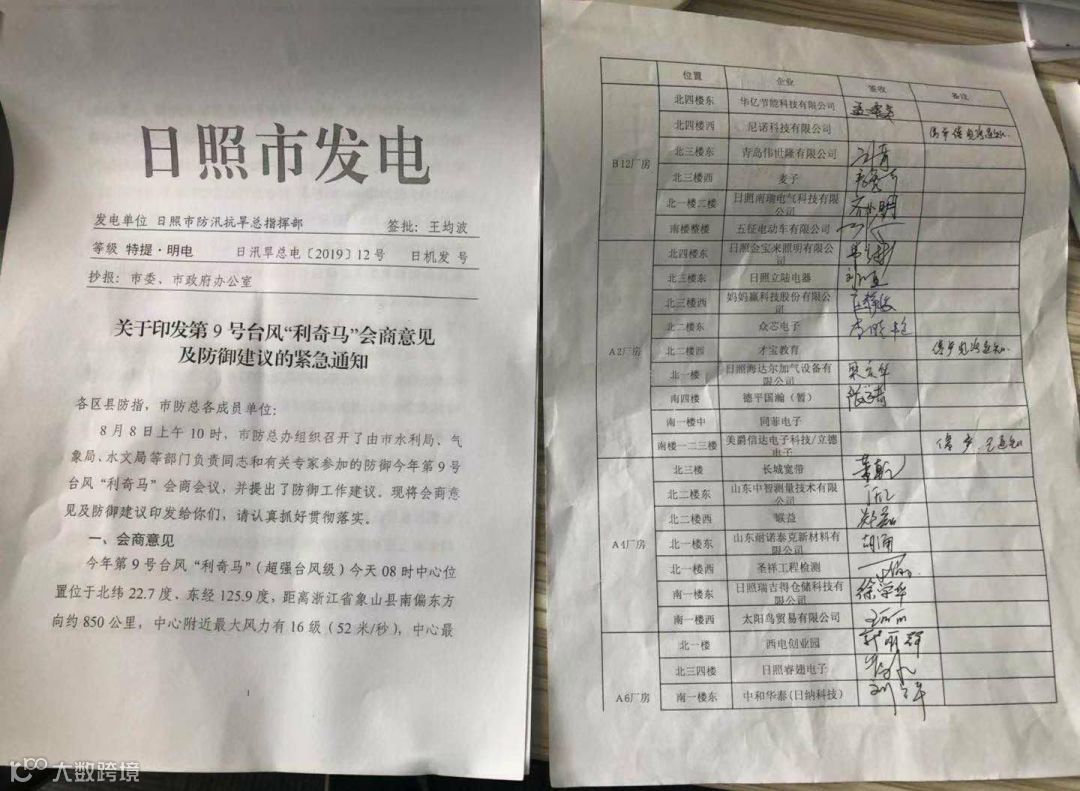 日照市发电
发电单位 日照市防汛抗旱总指挥部 签批：王均波
等级 特提·明电 日汛旱总电〔2019〕12号 日机发 号
抄报：市委、市政府办公室
关于印发第9号台风“利奇马”会商意见
及防御建议的紧急通知
各区县防指，市防总各成员单位：
8月8日上午10时，市防总办组织召开了由市水利局、气
象局、水文局等部门负责同志和有关专家参加的防御今年第9号
台风“利奇马”会商会议，并提出了防御工作建议。现将会商意
见及防御建议印发给你们，请认真抓好贯彻落实。
一、会商意见
今年第9号台风“利奇马”（超强台风级）今天08时中心位
置位于北纬22.7度、东经125.9度，距离浙江省象山县南偏东方
向约850公里，中心附近最大风力有16级（52米/秒），中心最
1
位置 企业 签收 备注
B12厂房
北四楼东 华亿节能科技有限公司
北四楼西 尼诺科技有限公司
北三楼东 青岛伟世隆有限公司
北三楼西 麦子
北一楼二楼 日照南瑞电气科技有限公司
南楼整楼 五征电动车有限公司
A2厂房
北四楼东 日照金宝来照明有限公司
北三楼东 日照立陆电器
北三楼西 妈妈赢科技股份有限公司
北二楼东 众芯电子
北二楼西 才宝教育
北一楼 日照海达尔加气设备有限公司
南四楼 德平国瀚（暂）
南一楼中 同菲电子
南楼一二三楼 美爵信达电子科技/立德电子
A4厂房
北三楼 长城宽带
北二楼东 山东中智测量技术有限公司
北二楼西 猴益
北一楼东 山东耐诺泰克新材料有限公司 胡涌
北一楼西 圣祥工程检测
南一楼东 日照瑞吉得仓储科技有限公司 徐学华
南一楼西 太阳鸟贸易有限公司 王丽丽
A6厂房
北一楼 西电创业园
北三四楼 日照睿翅电子
南一楼东 中和华泰（日纳科技）
大数跨境